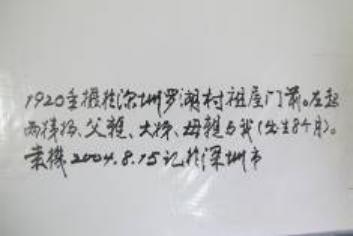 1920年摄於深圳罗湖村祖屋门前。左起
两侍扬、父親、大姊、母親与我(出生8个月)。
2004.8.15记於深圳市